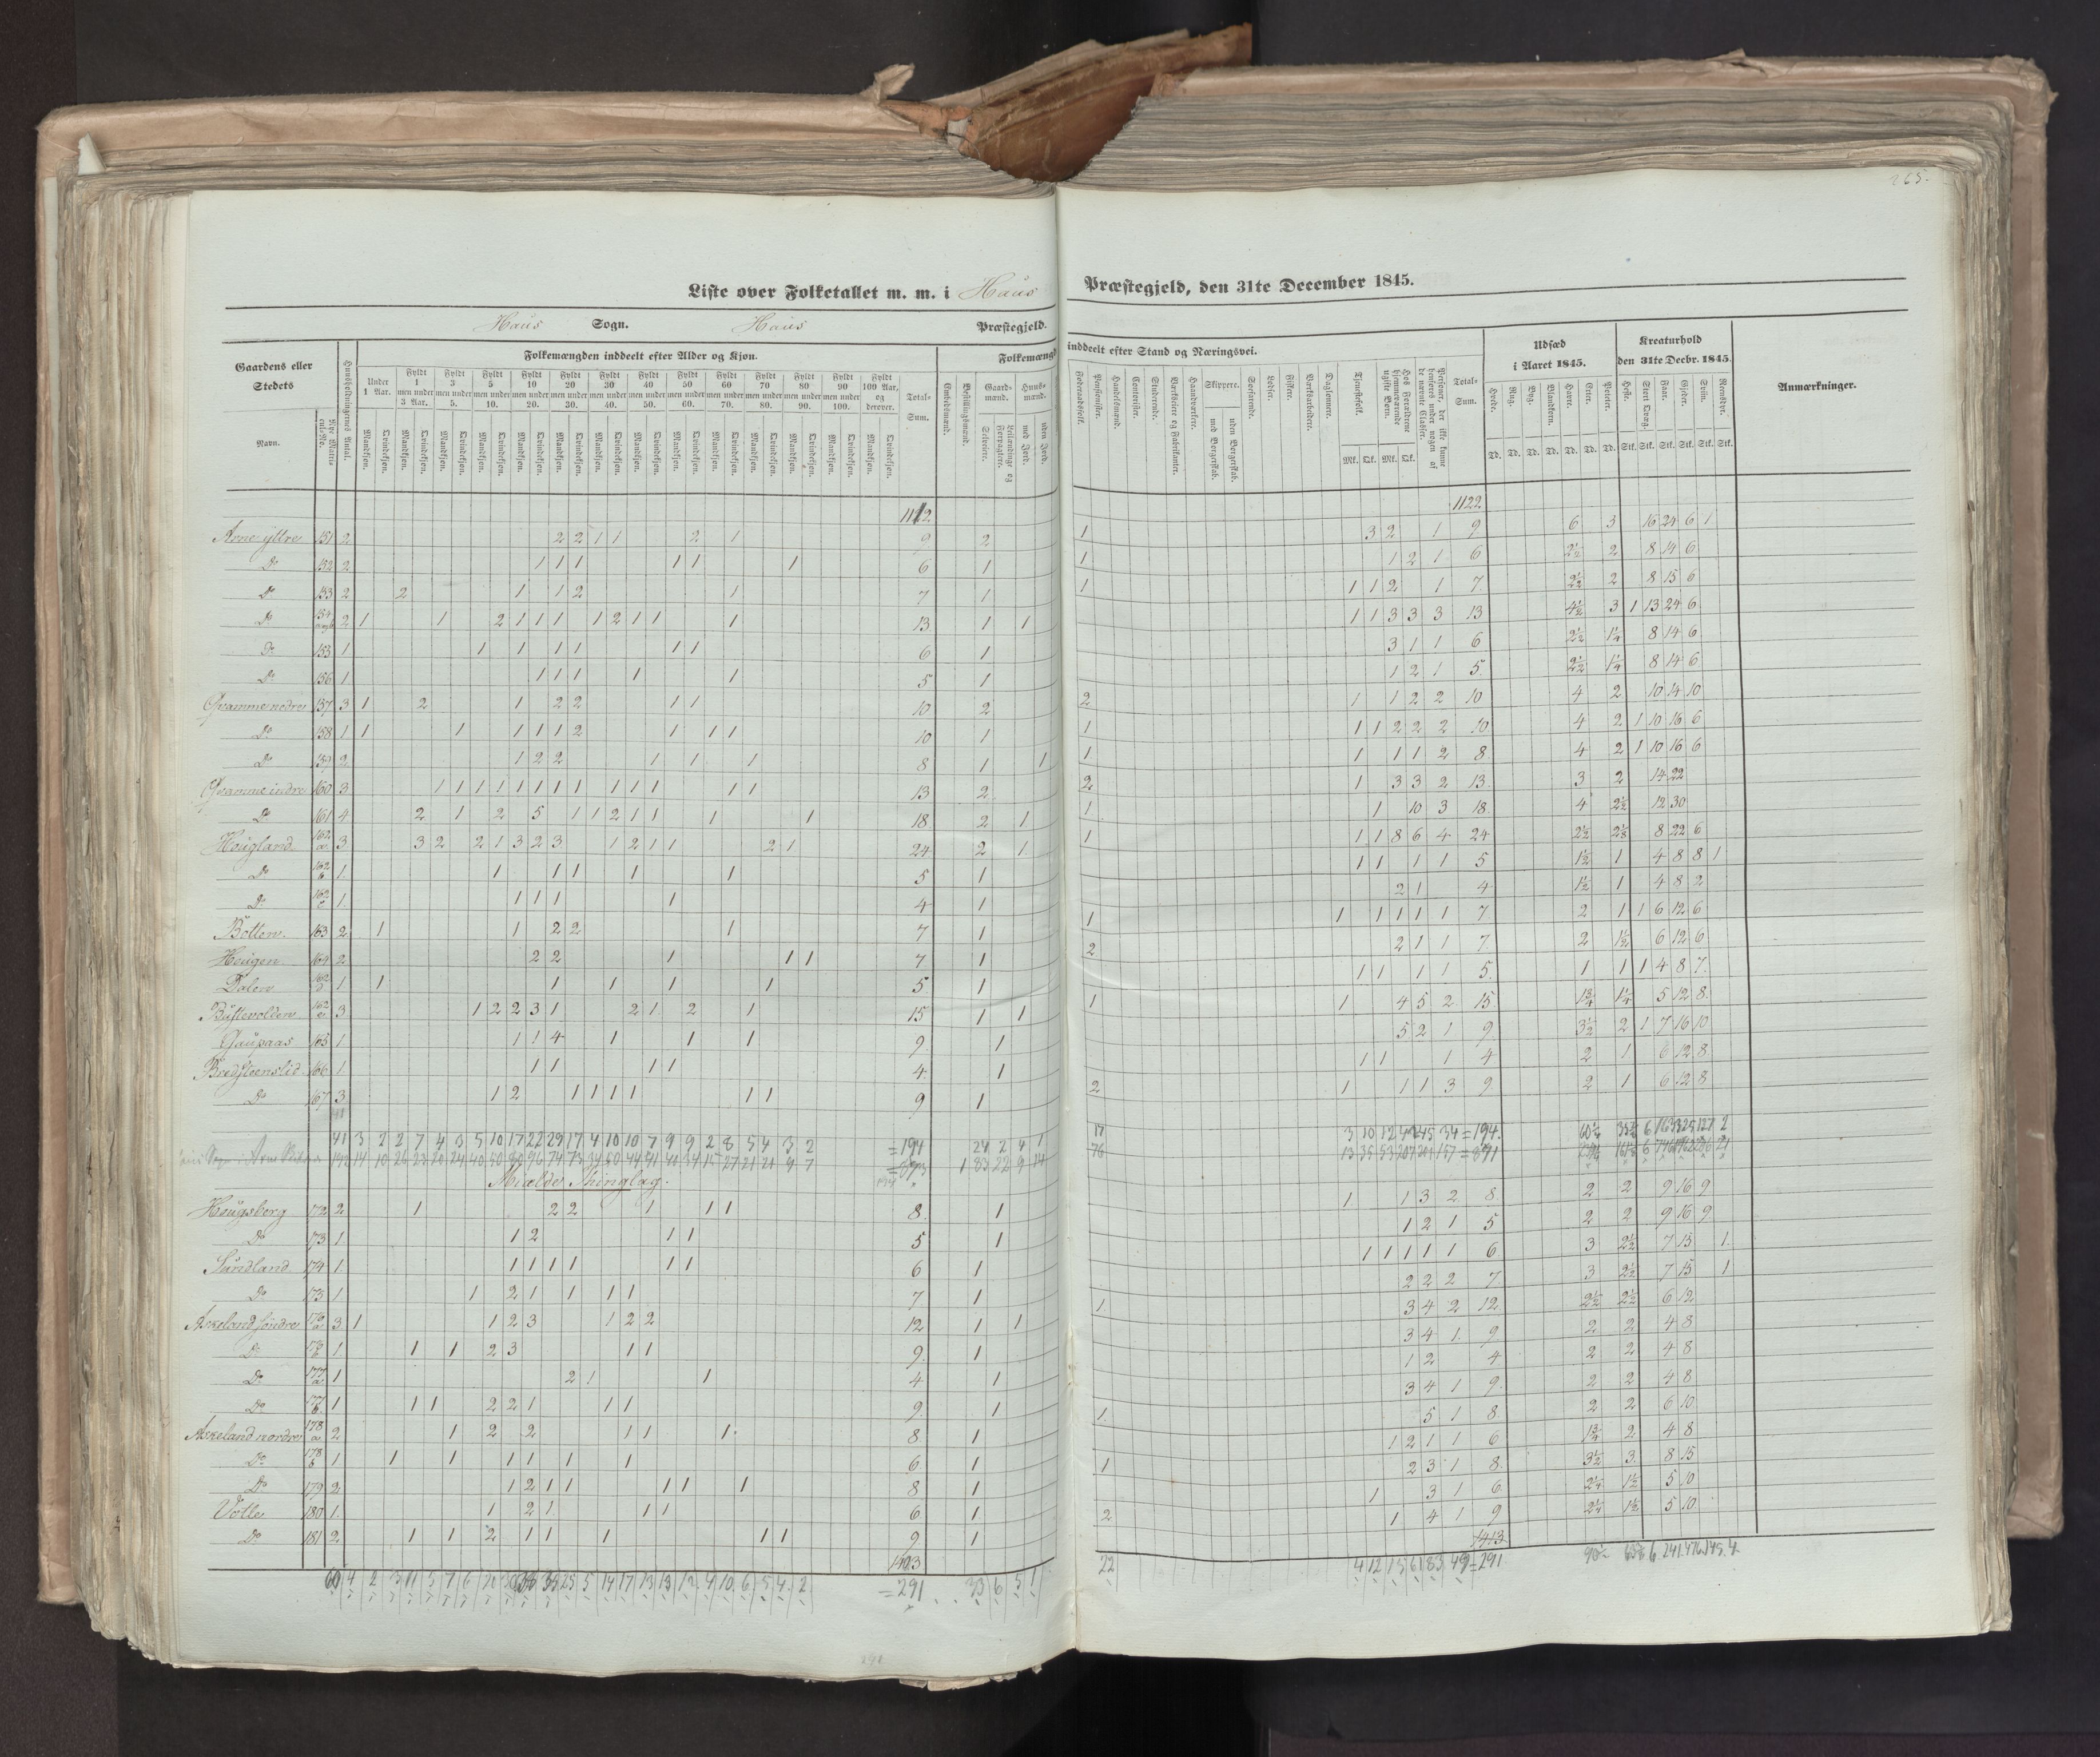 265.
Liste over Folketallet m. m. i Haus Præstegjeld, den 31te December 1845.
Haus Sogn. Haus Præstegjeld.
Gaardens eller Stedets
Navn.
Huusholdningernes Antal.
Folkemængden inddeelt efter Alder og Kjøn.
Under 1 Aar.
Fyldt 1 men under 3 Aar.
Fyldt 3 men under 5.
Fyldt 5 men under 10.
Fyldt 10 men under 20.
Fyldt 20 men under 30.
Fyldt 30 men under 40.
Fyldt 40 men under 50.
Fyldt 50 men under 60.
Fyldt 60 men under 70.
Fyldt 70 men under 80.
Fyldt 80 men under 90.
Fyldt 90 men under 100.
Fyldt 100 Aar, og derover.
Mandkjøn. Qvindekjøn.
Total-Sum.
Folkemængden inddeelt efter Stand og Næringsvei.
Embedsmænd.
Bestillingsmænd.
Gaardmænd.
Selveiere.
Leilændinge og Forpagtere.
Huusmænd.
med Jord.
uden Jord.
Føderaadsfolk.
Pensionister.
Handelsmænd.
Contorister.
Studerende.
Værkseiere og Fabrikanter.
Haandværkere.
Skippere.
med Borgerskab.
uden Borgerskab.
Søefarende.
Lodser.
Fiskere.
Værksarbeidere.
Daglønnere.
Tjenestefolk.
Hos Forældrene hjemmeværende ugifte Børn.
Personer, der ikke kunne henføres under nogen af de nævnte Classer.
Mk. Qk. Mk. Qk.
Total-Sum.
Udsæd i Aaret 1845.
Hvede. Rug. Byg. Blandkorn. Havre. Erter. Poteter.
Td. Td. Td. Td. Td. Td. Td.
Kreaturhold den 31te Decbr. 1845.
Heste. Stort Qvæg. Faar. Gjeder. Sviin. Rensdyr.
Stk. Stk. Stk. Stk. Stk. Stk.
Anmærkninger.
1122
Arne yttre 151 2 2 2 1 1 2 1 9 2 1 3 2 1 9 6 3 16 24 6 1
Do 152 2 1 1 1 1 1 1 6 1 1 1 2 1 6 2½ 2 8 14 6
Do 153 2 2 1 1 2 1 7 1 1 1 1 2 1 7 2½ 2 8 15 6
Do 154 2 1 1 2 1 1 1 1 2 1 1 1 13 1 1 1 1 3 3 3 13 4½ 3 1 13 24 6
Do 1 1 1 1 1 1 1 6 1 3 1 1 6 2½ 1¼ 8 14 6
Do 156 1 1 1 1 1 1 5 1 1 2 1 5 2½ 1¼ 8 14 6
Qvamme nedre 157 3 1 2 1 2 2 1 1 10 2 2 1 1 2 2 10 4 2 10 14 10
Do 158 1 1 1 1 1 1 2 1 1 1 10 1 1 1 1 2 2 2 10 4 2 1 10 16 6
Do 159 2 1 2 2 1 1 1 8 1 1 1 1 1 1 2 8 4 2 1 10 16 6
Qvamme indre 160 3 1 1 1 1 1 1 1 1 1 1 1 1 1 13 2 2 1 3 3 2 13 3 2 14 22
Do 161 4 2 1 2 5 1 1 2 1 1 1 1 18 2 1 1 1 10 3 18 4 2½ 12 30
Hougland 162 a 3 3 2 2 1 3 2 3 1 2 1 1 2 1 24 2 1 1 1 1 8 6 4 24 2½ 8 22 6
Do 162 b 1 1 1 1 1 1 5 1 1 1 1 1 5 1½ 1 4 8 8 1
Do 162 c 1 1 1 1 1 4 1 2 1 4 1½ 1 4 8 2
Botten 163 2 1 1 2 2 1 7 1 1 1 1 1 1 1 7 2 1 1 6 12 6
Hougen 164 2 2 2 1 1 1 7 1 2 2 1 1 7 2 1½ 6 12 6
Dalen 162 d 1 1 1 1 1 1 5 1 1 1 1 1 5 1 1 1 4 8 7
162 e 3 1 2 2 3 1 2 1 2 1 15 1 1 1 1 4 5 2 15 1¾ 1¼ 5 12 8
Gaupaas 165 1 1 1 4 1 1 1 9 1 5 2 1 9 3½ 2 1 7 16 10
Bredsteenslid 166 1 1 1 1 1 4 1 1 1 1 4 2 1 6 12 8
Do 167 3 1 2 1 1 1 1 1 1 9 1 2 1 1 1 3 9 2 1 6 12 8
41 3 2 2 7 4 3 5 10 17 22 29 17 4 10 10 7 9 9 2 8 5 4 3 2 =194 24 2 4 1 17 3 10 12 45 34 =194
=891
Mjelde Thinglag.
Hougsberg 172 2 1 2 2 1 1 1 8 1 1 1 3 2 8 2 2 9 16 9
Do 173 1 1 2 1 1 5 1 1 2 1 5 2 2 9 16 9
Sundland 174 1 1 1 1 1 1 1 6 1 1 1 1 1 1 6 3 2½ 7 15 1
Do 175 1 1 2 1 1 1 1 7 1 2 2 2 7 3 2½ 7 15 1
Askeland søndre 3 1 1 2 3 1 2 2 12 1 1 1 3 4 2 12 2½ 2½ 6 12
Do 1 1 1 2 3 1 1 9 1 3 4 1 9 2 2 4 8
Do 177 a 1 2 1 1 4 1 1 2 4 2 2 4 8
Do 177 b 1 1 1 2 2 1 1 1 9 1 3 4 1 9 2 2 4 8
Askeland nordre 178 a 2 1 2 2 1 1 1 8 1 1 5 1 8 2 2 6 10
Do 178 b 1 1 1 1 1 1 1 6 1 1 2 1 1 6 1¾ 2 4 8
Do 179 2 1 2 1 1 1 1 1 8 1 1 2 3 1 8 3½ 3 8 15
Votle 180 1 1 2 1 1 1 6 1 1 3 1 6 2¼ 1½ 5 10
Do 181 2 1 1 2 1 1 1 1 1 9 1 2 1 4 1 9 2¼ 1½ 5 10
1413
60 4 2 3 11 5 7 6 =291 22 4 12 15 61 83 49 =291
291